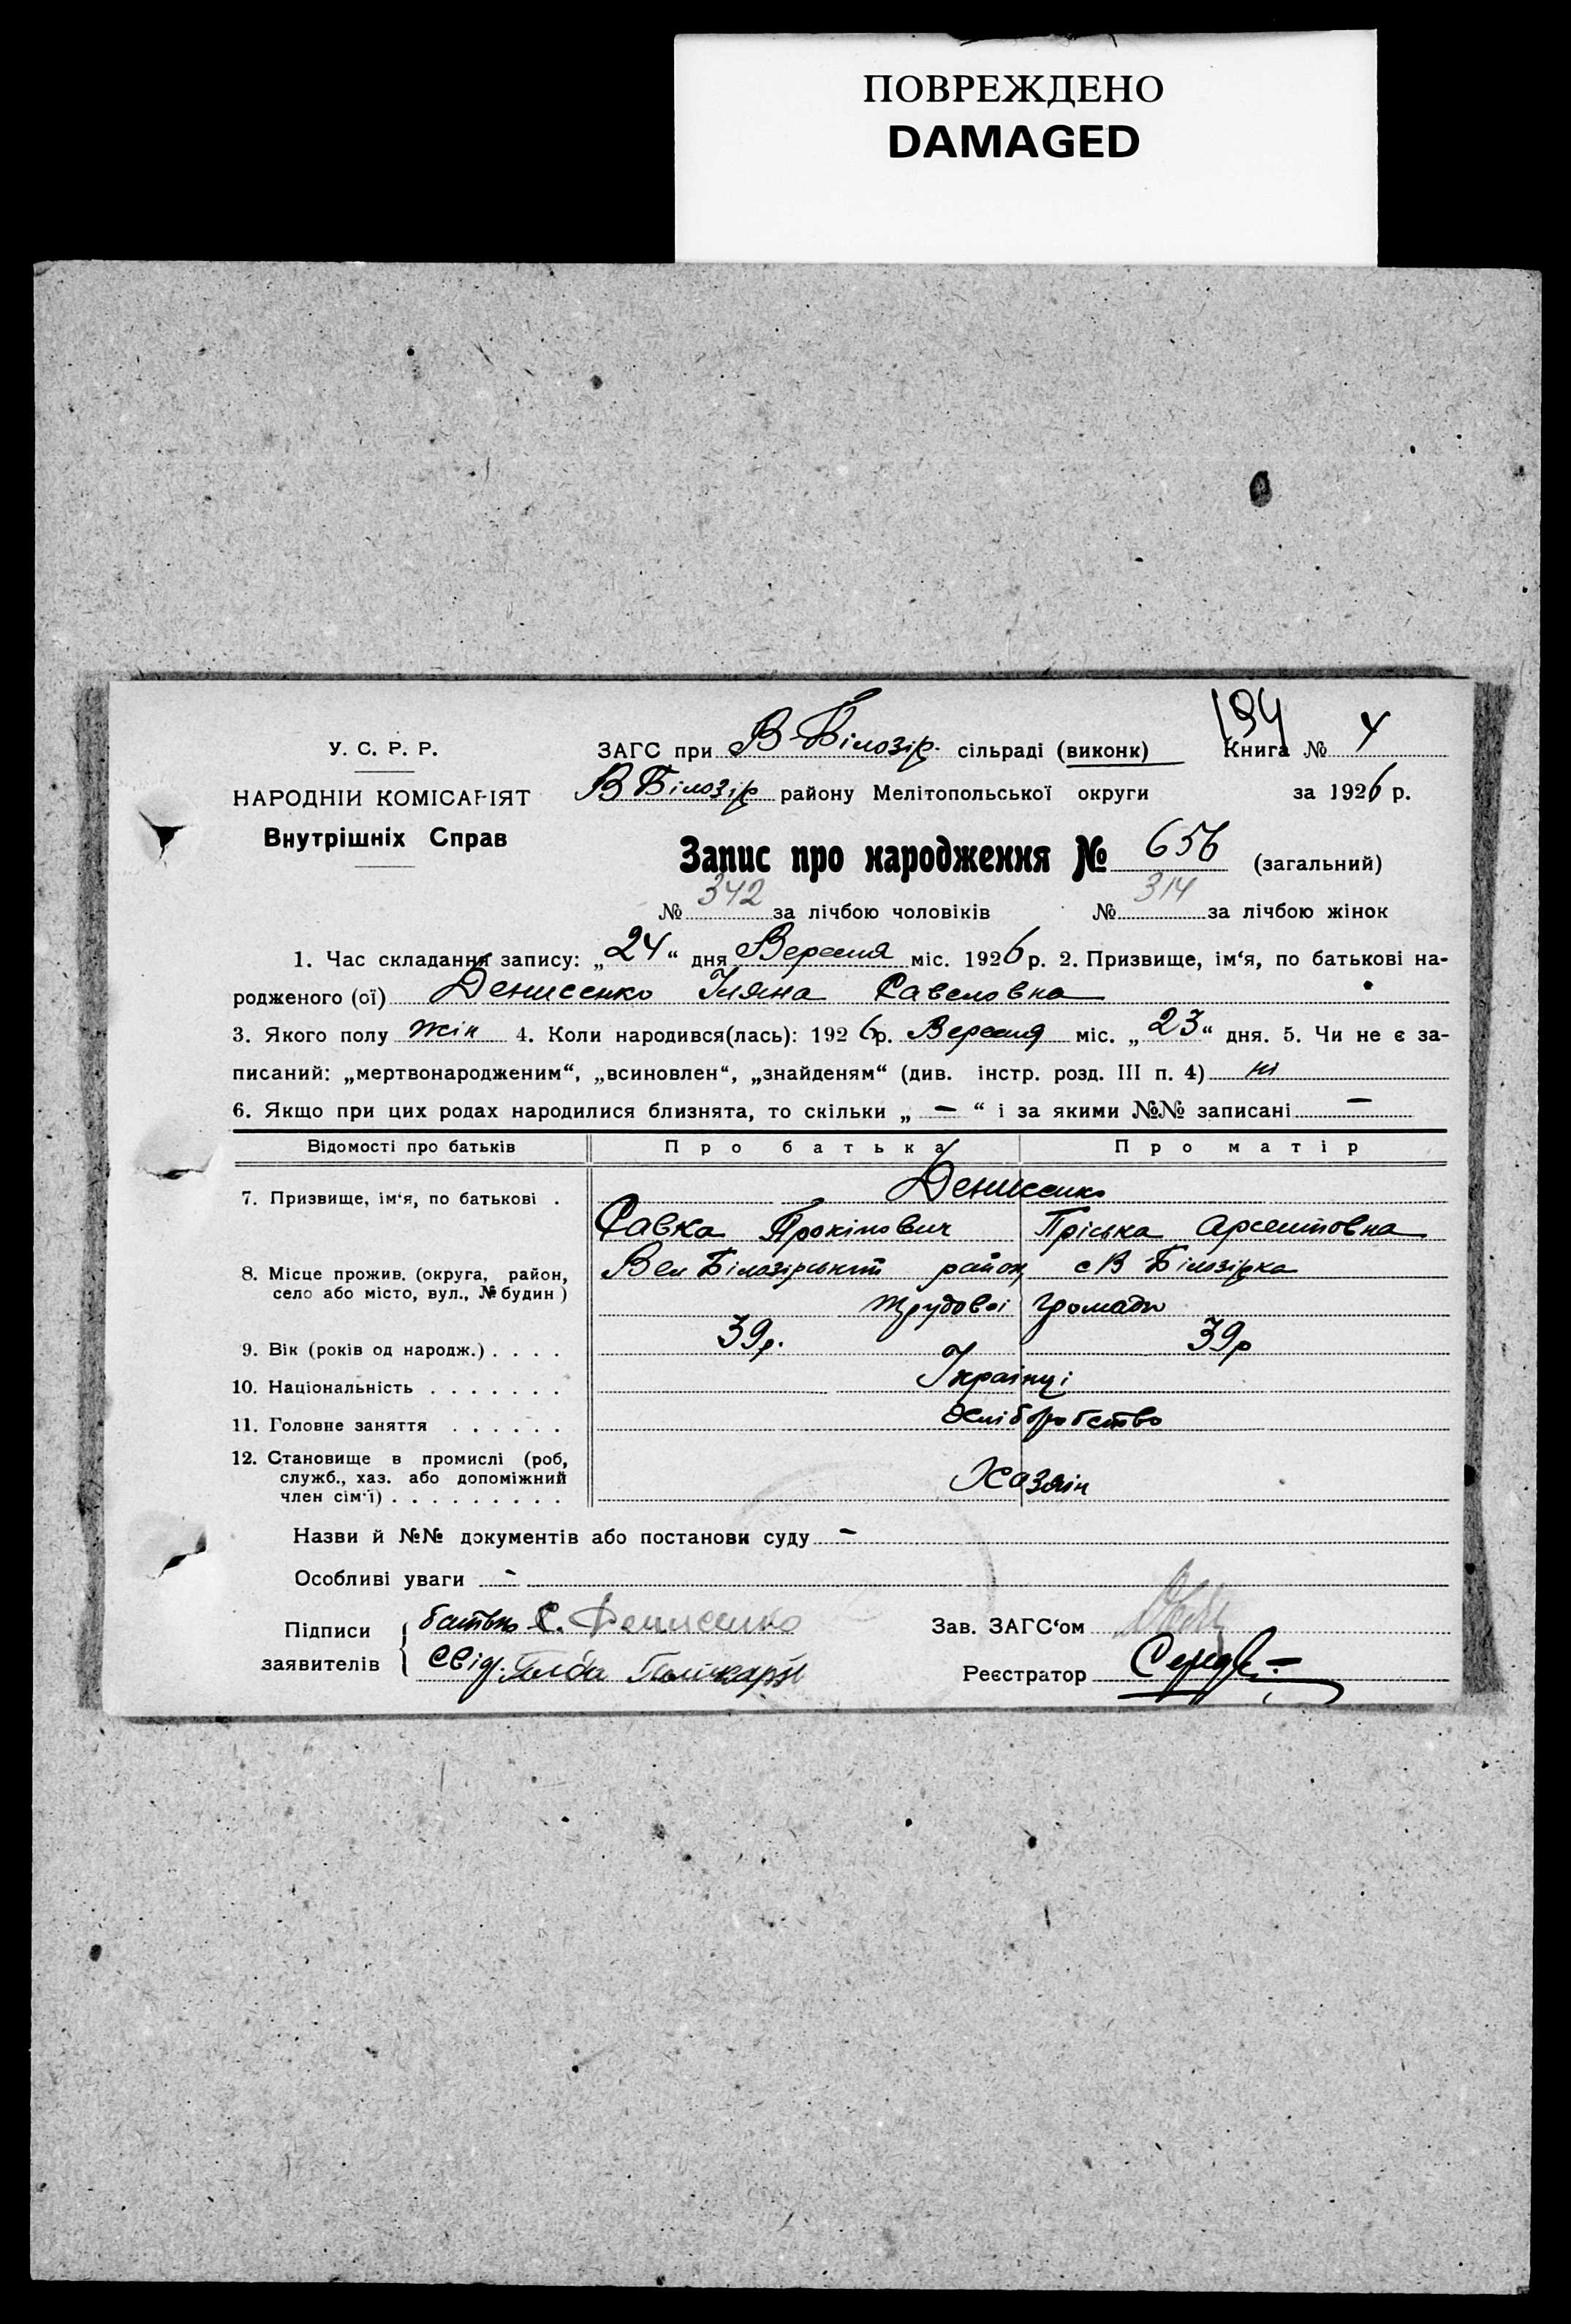 ПОВРЕЖДЕНО
DAMAGED
194
У. С. Р. Р.
НАРОДНІЙ КОМІСАРІЯТ
Внутрішніх Справ
ЗАГС при В-Білозір. сільраді (виконк) Книга № 4
В Білозір району Мелітопольської округи за 1926 р.
Запис про народження № 656 (загальний)
№ 342 за лічбою чоловіків № 314 за лічбою жінок
1. Час складання запису: „24“ дня Вересня міс. 1926 р. 2. Призвище, ім‘я, по батькові на-
родженого (ої) Денисенко Уляна Савеловна
3. Якого полу жін 4. Коли народився(лась): 1926р. Вересня міс. „23“ дня. 5. Чи не є за-
писаний: „мертвонародженим“, „всиновлен“, „знайденям“ (див. інстр. розд. III п. 4) ні
6. Якщо при цих родах народилися близнята, то скільки „ — “ і за якими №№ записані —
Відомості про батьків Про батька Про матір
7. Призвище, ім‘я, по батькові . Денисенко
Савка Прокіпович Пріська Арсентовна
8. Місце прожив. (округа, район, село або місто, вул., № будин) Вел Білозірський район с В Білозірка
Трудової громади
9. Вік (років од народж.) . . . . 39р. 39р
10. Національність . . . . . . . Українці
11. Головне заняття . . . . . . хліборобство
12. Становище в промислі (роб,
служб., хаз. або допоміжний
член сім‘ї) . . . . . . . . . Хазяїн
Назви й №№ документів або постанови суду —
Особливі уваги —
Підписи батько С. Денисенко Зав. ЗАГС‘ом
заявителів свід. Реєстратор